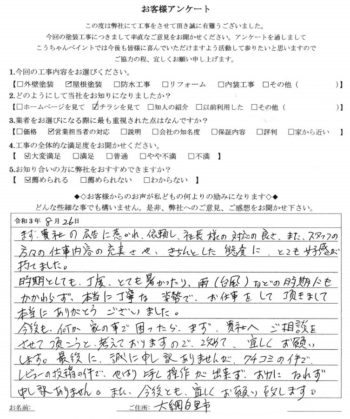 お客様アンケート
この度は弊社にて工事をさせて頂き誠に有難うございました。
今回の塗装工事につきまして率直なご意見をお聞かせください。アンケートを通しまして
こうちゃんペイントでは今後も皆様に喜んでいただけますよう活動して参りたいと思いますので
ご協力の程、宜しくお願い申し上げます。
1.今回の工事内容をお選びください。
□外壁塗装 ☑屋根塗装 □防水工事 □リフォーム □内装工事 □その他( )
2.どのようにして当社をお知りになりましたか?
□ホームページを見て ☑チラシを見て □知人の紹介 □以前利用した □その他( )
3.業者をお選びになる際に最も重視された点はなんですか?
□価格 ☑営業担当者の対応 □説明 □会社の知名度 □保証内容 □評判 □家から近い
4.工事の全体的な満足度をお聞かせください。
☑大変満足 □満足 □普通 □やや不満 □不満
5.お知り合いの方に弊社をおすすめできますか?
☑薦められる □薦められない □わからない
◇◆お客様からのお声が私どもの何よりの励みになります◇◆
どんな些細な事でも構いません。是非、弊社へのご意見、ご感想をお聞かせ下さい。
令和3年 8月26日
まず、貴社の広告に惹かれ、依頼し、社長様の対応の良さ、また、スタッフの
方々の仕事内容の充実さや、きちんとした態度に、とても好感が
持てました。
時期としても、丁度、とても暑かったり、雨(台風)などの時期にも
かかわらず、本当に丁寧な姿勢で、お仕事をして頂きまして
本当にありがとうございました。
今後も、何か家の事で困ったら、まず、貴社へご相談を
させて頂こうと、考えておりますので、改めて、宜しくお願い
します。最後に、誠に申し訳ありませんが、クチコミの件で、
レビューの投稿の件で、やはり上手く操作が出来ず、お力になれず
申し訳ありません。また、今後とも、宜しくお願い致します。
お名前: ご住所: 大網白里市